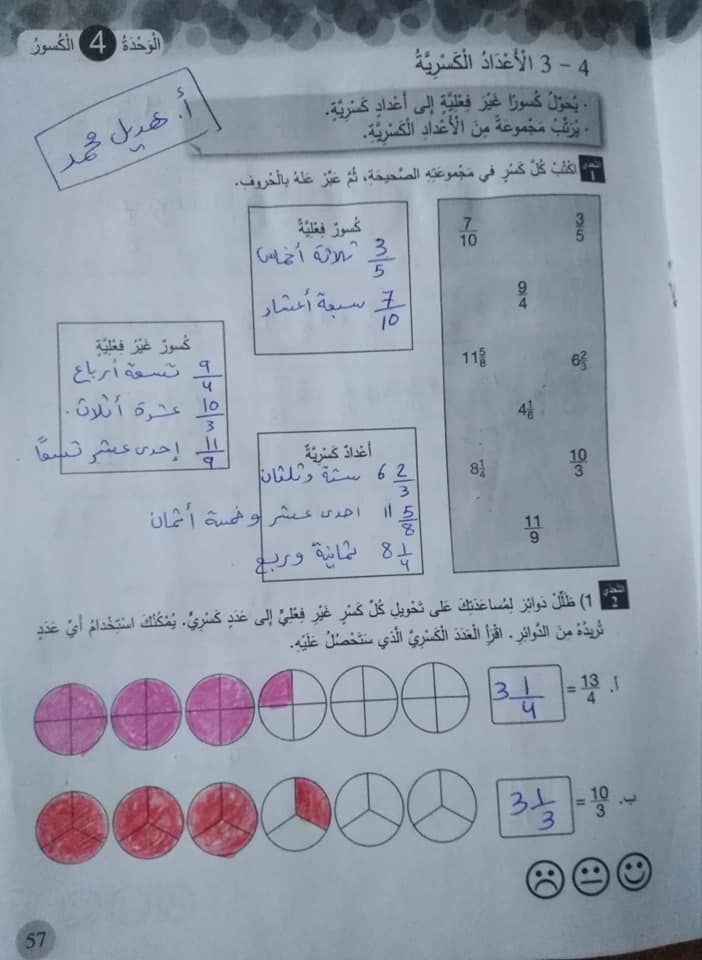 الْوَحْدَةُ 4 الْكُسورُ
4 - 3 الْأَعْدادُ الْكَسْرِيَّةُ
· يُحَوِّلُ كُسورًا غَيْرَ فِعْلِيَّةٍ إِلى أَعْدادٍ كَسْرِيَّةٍ.
· يُرَتِّبُ مَجْموعَةً مِنَ الْأَعْدادِ الْكَسْرِيَّةِ.
أ. هديل محمد
التَّحَدّي 1 اكْتُبْ كُلَّ كَسْرٍ في مَجْموعَتِهِ الصَّحيحَةِ، ثُمَّ عَبِّرْ عَنْهُ بِالْحُروفِ.
3/5 7/10
9/4
6 2/3 11 5/8
4 1/6
10/3 8 1/4
11/9
كُسورٌ فِعْلِيَّةٌ
3/5 ثلاثة أخماس
7/10 سبعة أعشار
كُسورٌ غَيْرُ فِعْلِيَّةٍ
9/4 تسعة أرباع
10/3 عشرة أثلاث
11/9 إحدى عشر تسعًا
أَعْدادٌ كَسْرِيَّةٌ
6 2/3 ستة وثلثان
11 5/8 احدى عشر وخمسة أثمان
8 1/4 ثمانية وربع
التَّحَدّي 2 1) ظَلِّلْ دَوائِرَ لِمُساعَدَتِكَ عَلى تَحْويلِ كُلِّ كَسْرٍ غَيْرِ فِعْلِيٍّ إِلى عَدَدٍ كَسْرِيٍّ. يُمْكِنُكَ اسْتِخْدامُ أَيِّ عَدَدٍ
تُريدُهُ مِنَ الدَّوائِرِ. اقْرَأِ الْعَدَدَ الْكَسْرِيَّ الَّذي سَتَحْصُلُ عَلَيْهِ.
أ. 13/4 = 3 1/4
ب. 10/3 = 3 1/3
57